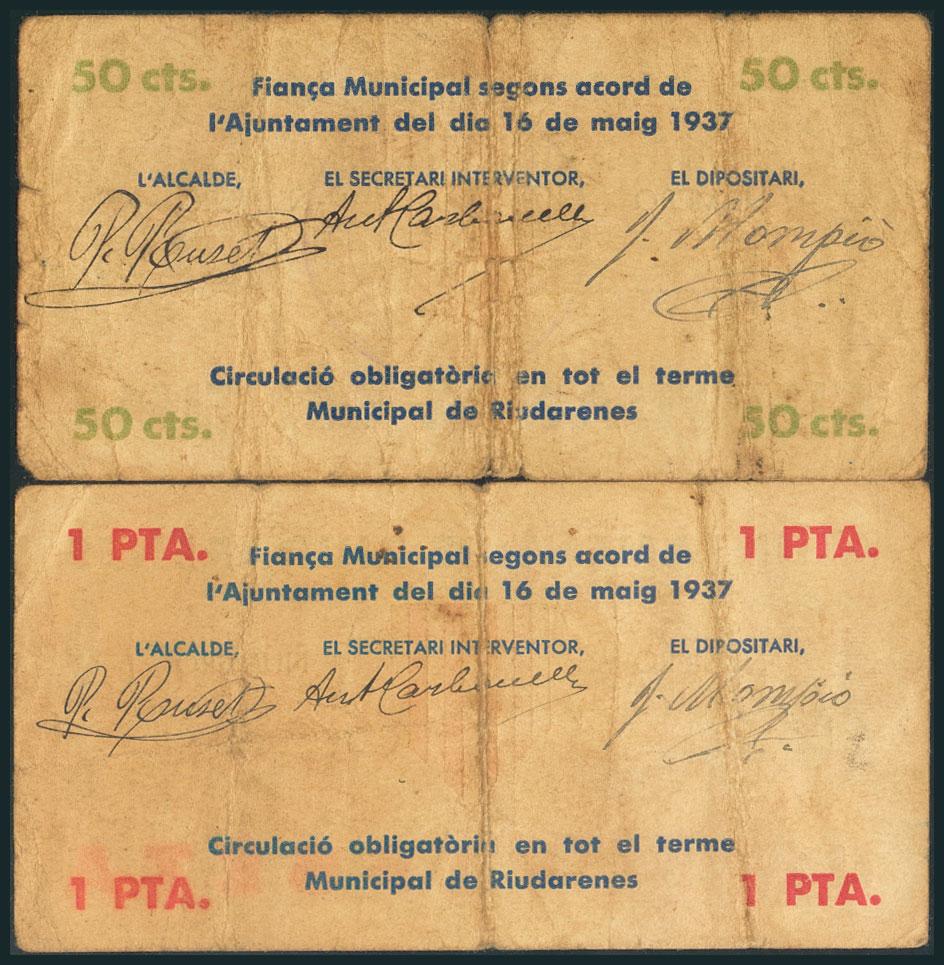 50 cts. 50 cts.
Fiança Municipal segons acord de
l'Ajuntament del dia 16 de maig 1937
L'ALCALDE, EL SECRETARI INTERVENTOR, EL DIPOSITARI,
Circulació obligatòria en tot el terme
Municipal de Riudarenes
50 cts. 50 cts.
1 PTA. 1 PTA.
Fiança Municipal segons acord de
l'Ajuntament del dia 16 de maig 1937
L'ALCALDE, EL SECRETARI INTERVENTOR, EL DIPOSITARI,
Circulació obligatòria en tot el terme
Municipal de Riudarenes
1 PTA. 1 PTA.